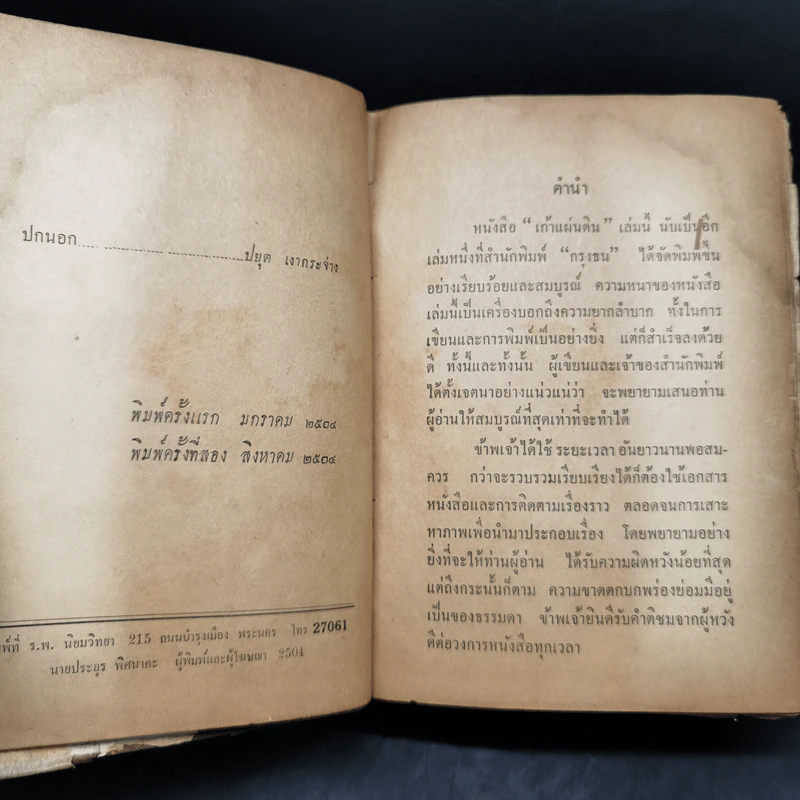 ปกนอก.......................................ปยุต เงากระจ่าง
พิมพ์ครั้งแรก มกราคม ๒๕๐๔
พิมพ์ครั้งที่สอง สิงหาคม ๒๕๐๔
ร.พ. นิยมวิทยา 215 ถนนบำรุงเมือง พระนคร โทร 27061
นายประยูร พิศนาคะ ผู้พิมพ์และผู้โฆษณา 2504
คำนำ
หนังสือ “เก้าแผ่นดิน” เล่มนี้ นับเป็นอีก
เล่มหนึ่งที่สำนักพิมพ์ “กรุงธน” ได้จัดพิมพ์ขึ้น
อย่างเรียบร้อยและสมบูรณ์ ความหนาของหนังสือ
เล่มนี้เป็นเครื่องบอกถึงความยากลำบาก ทั้งในการ
เขียนและการพิมพ์เป็นอย่างยิ่ง แต่ก็สำเร็จลงด้วย
ดี ทั้งนี้และทั้งนั้น ผู้เขียนและเจ้าของสำนักพิมพ์
ได้ตั้งเจตนาอย่างแน่วแน่ว่า จะพยายามเสนอท่าน
ผู้อ่านให้สมบูรณ์ที่สุดเท่าที่จะทำได้
ข้าพเจ้าได้ใช้ ระยะเวลา อันยาวนานพอสม-
ควร กว่าจะรวบรวมเรียบเรียงได้ก็ต้องใช้เอกสาร
หนังสือและการติดตามเรื่องราว ตลอดจนการเสาะ
หาภาพเพื่อนำมาประกอบเรื่อง โดยพยายามอย่าง
ยิ่งที่จะให้ท่านผู้อ่าน ได้รับความผิดหวังน้อยที่สุด
แต่ถึงกระนั้นก็ตาม ความขาดตกบกพร่องย่อมมีอยู่
เป็นของธรรมดา ข้าพเจ้ายินดีรับคำติชมจากผู้หวัง
ดีต่อวงการหนังสือทุกเวลา